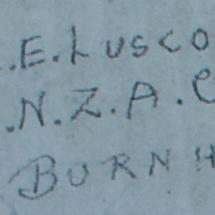 .E.LUSCO
.N.Z.A.C
BURNH